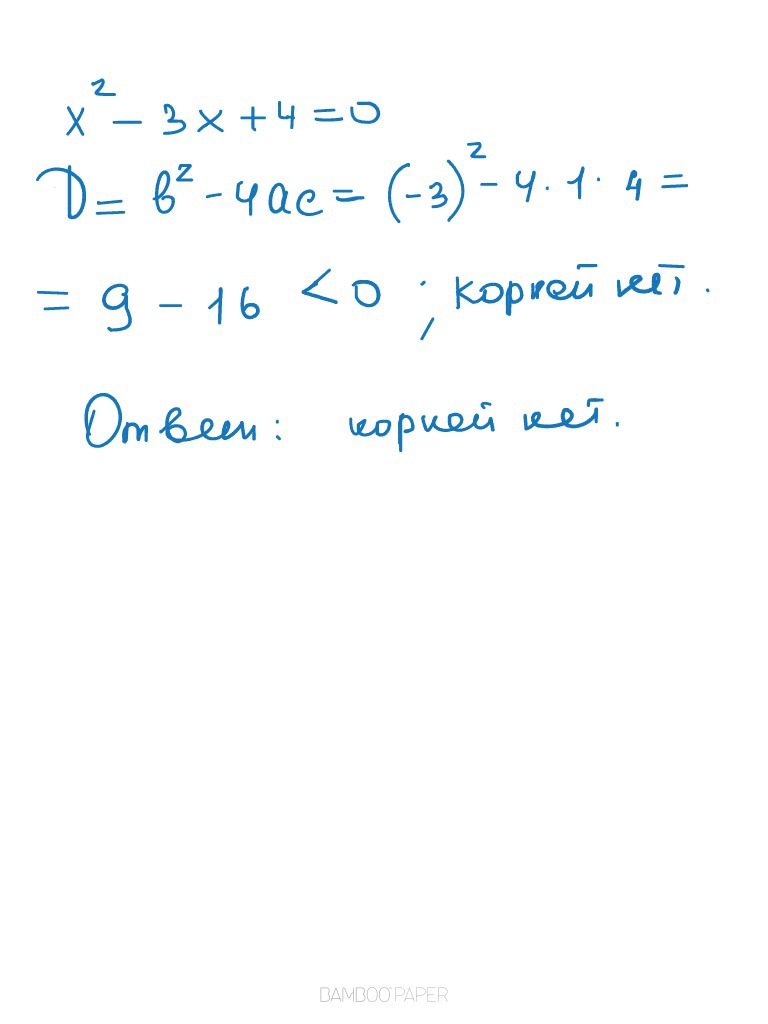 x² - 3x + 4 = 0
D = b² - 4ac = (-3)² - 4 · 1 · 4 =
= 9 - 16 < 0 ; корней нет.
Ответ: корней нет.
BAMBOO PAPER